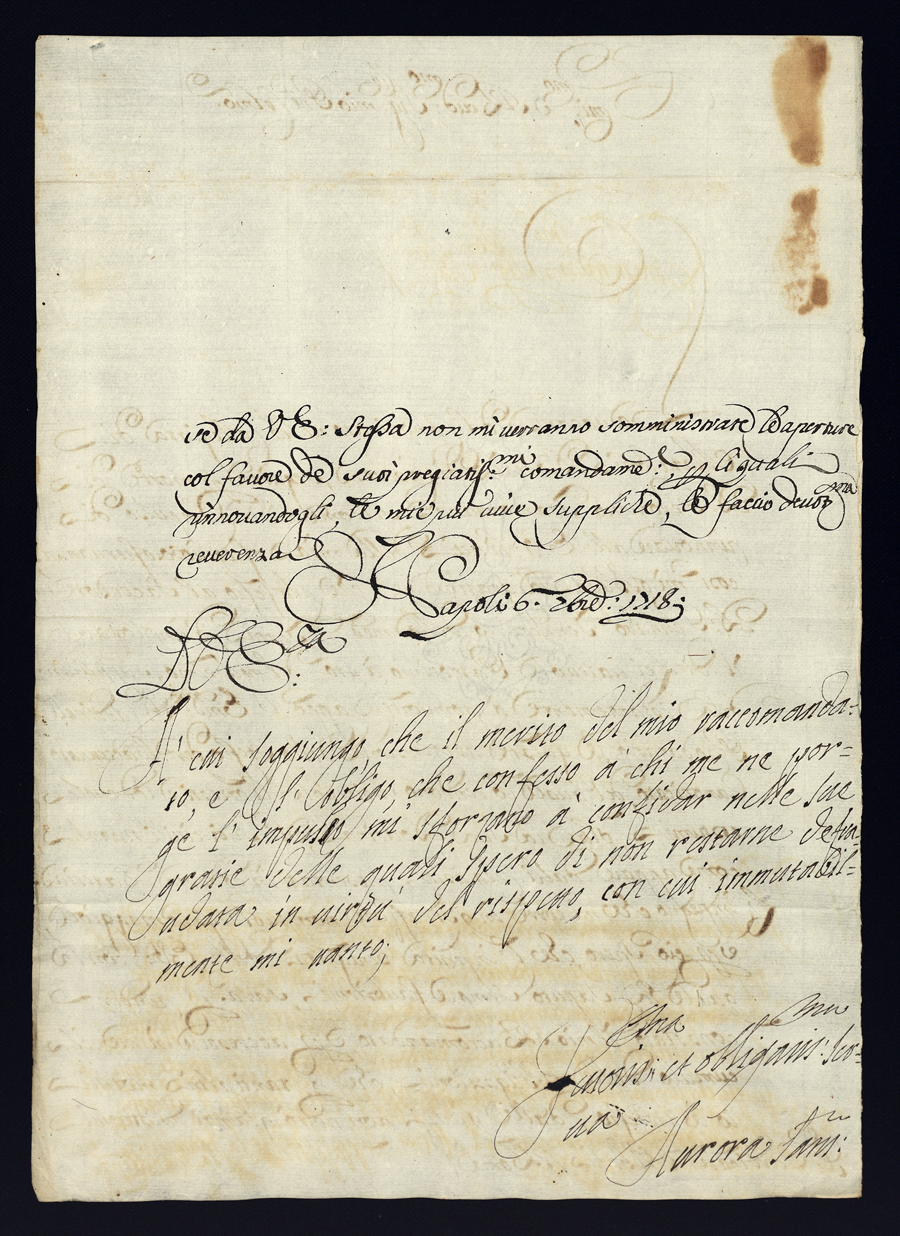 se da V E: stessa non mi verranno somministrate le aperture
col favore de suoi pregiatiss.mi comandam.ti, li quali
rinnovandogli, le mie più vive suppliche, le faccio devot.ma
reverenza
Napoli 6. Xbre: 1718;
D V E.za:
A' cui soggiungo, che il merito del mio raccomanda-
to, e l'obbligo, che confesso à chi me ne por-
ge l'impulso mi sforzano à confidar nelle sue
grazie delle quali spero di non restarne defra-
udata in virtù del rispetto, con cui immutabil-
mente mi vanto;
et obligatis:ma Ser-
va
Aurora Sans: